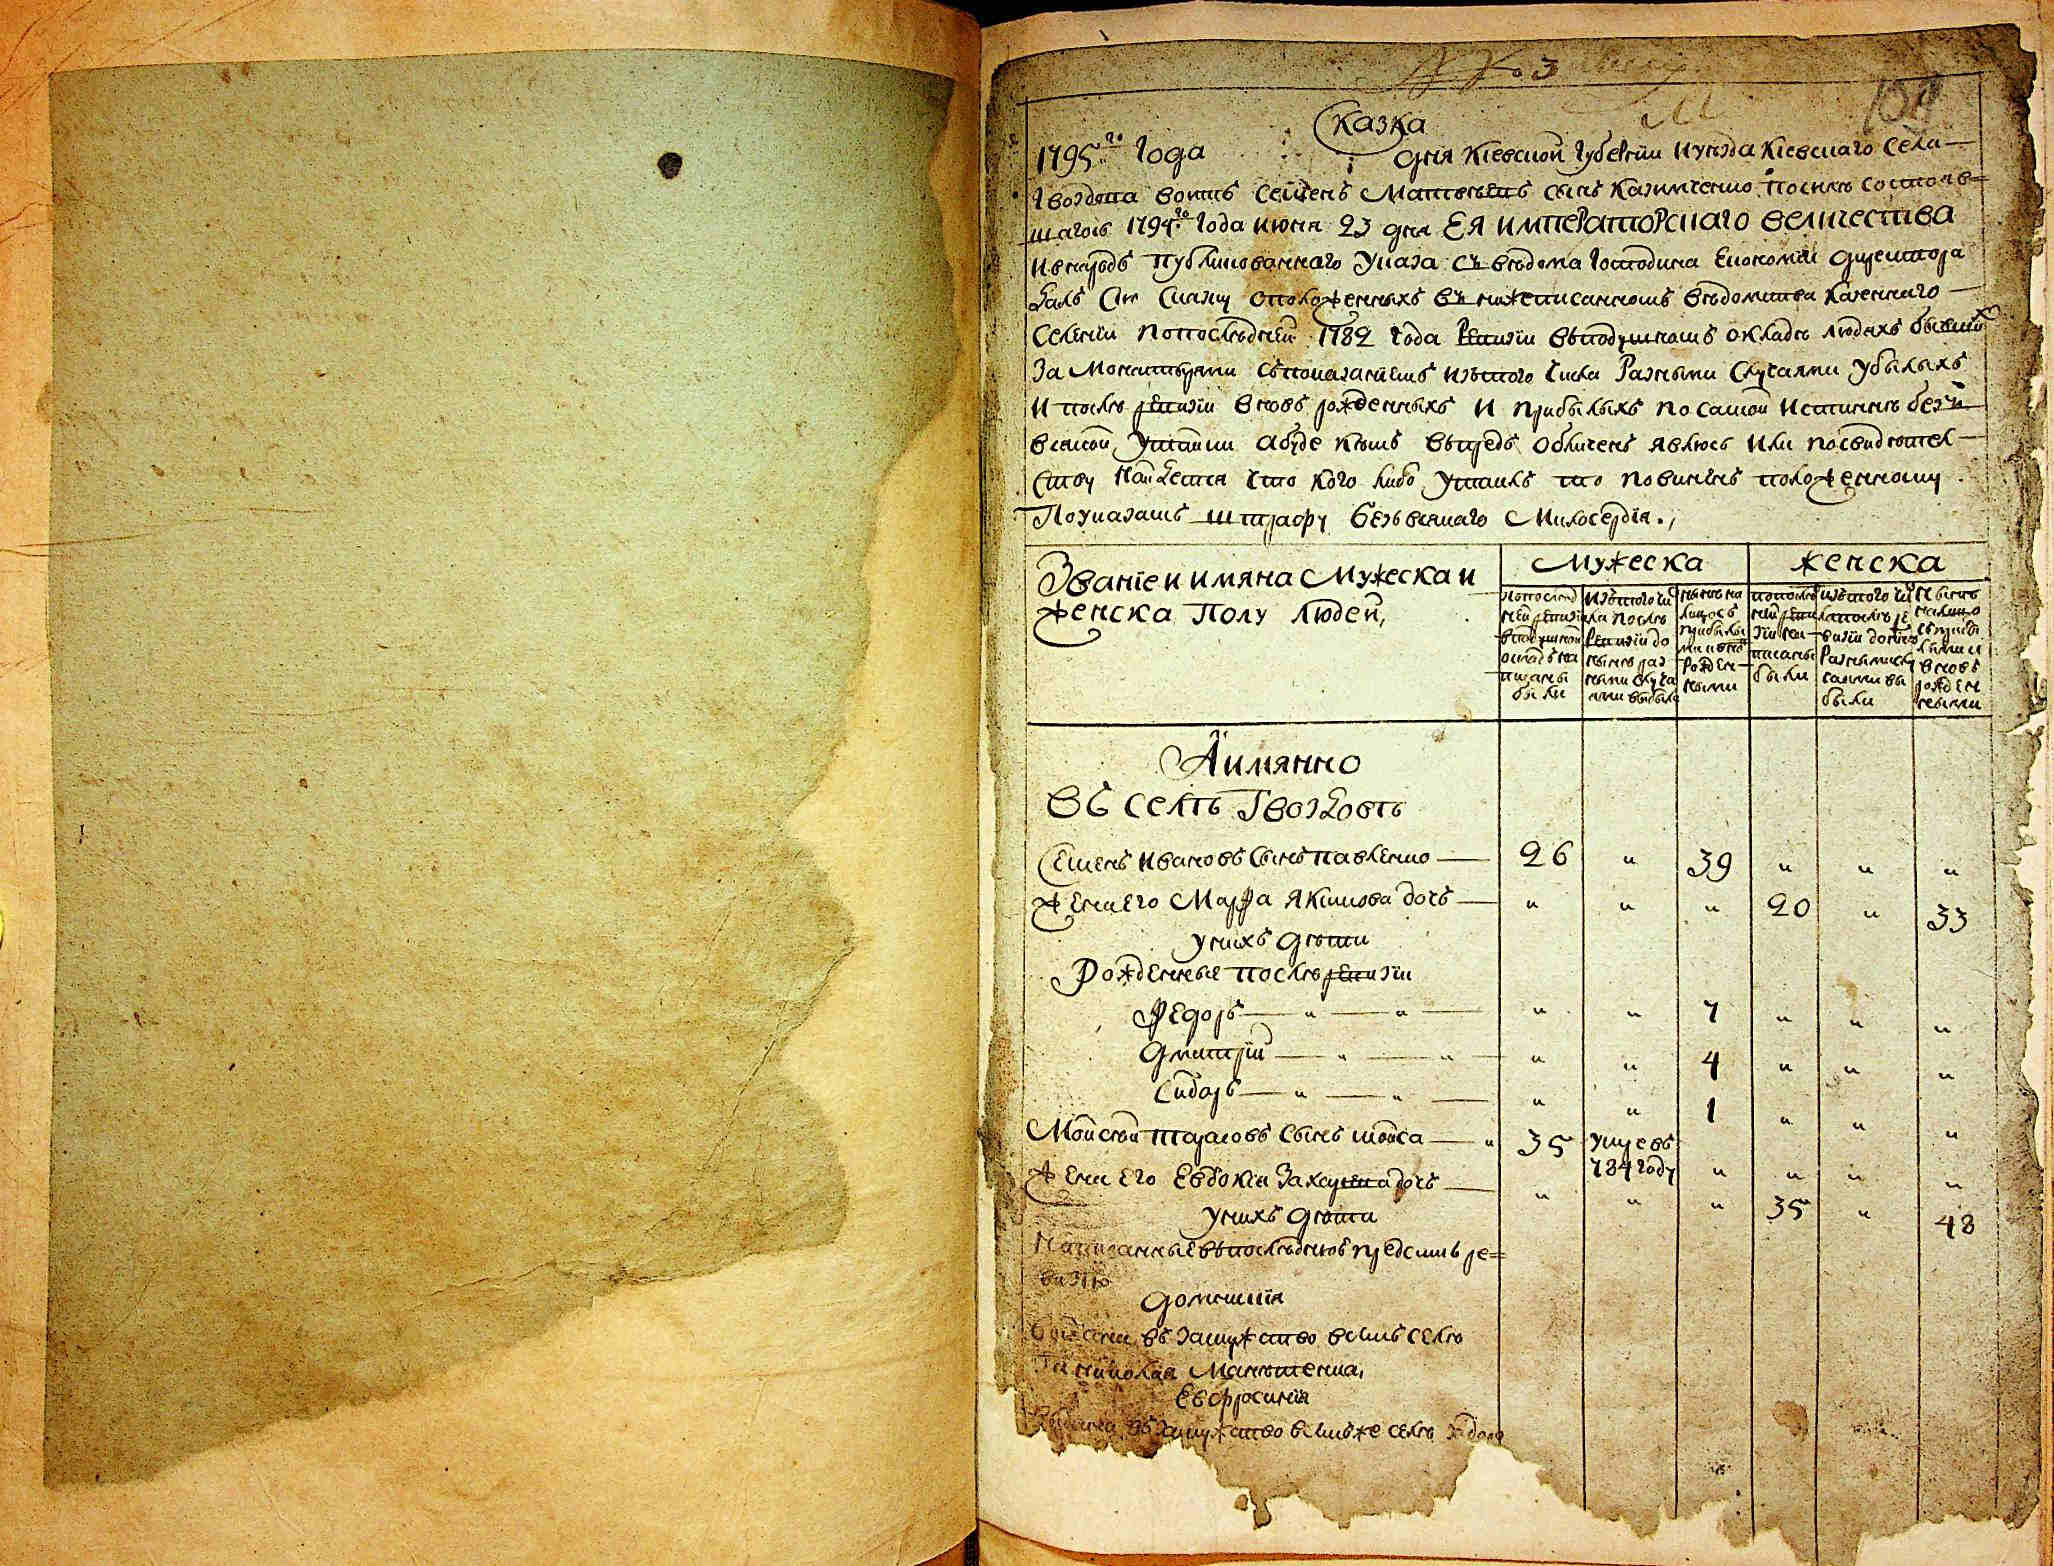 Сказка
1795го Года : : дня Кіевской Губерніи и уезда Кіевскаго Села
Гвоздова воитъ Семенъ Матвеевъ сынъ Казимченко после состояв=
шагось 1794го Года июня 23 дня ЕЯ ИМПЕРАТОРСКАГО ВЕЛИЧЕСТВА
и внародъ публикованнаго Указа съ ведома Господина Економіи директора
далъ Сію Сказку о положенныхъ в нижеписанномъ ведомства Казеннаго
Селеніи по последней 1782 Года Ревизіи в подушномъ окладе людехъ бывшихъ
За Монастырями с показаніемъ изтого Числа Разными Случаями убылыхъ
И после ревизіи вновь рожденныхъ И прибылыхъ по самой Истинне безъ
всякой Утайки а буде кемъ впредь Обличенъ явлюсь Или по свидетел
Ству Найдется Что Кого либо Утаилъ то повиненъ положенному
По указамъ штрафу безъ всякаго Милосердія.,
Званіе и имяна Мужеска и
женска Полу людей,
Мужеска
женска
по послед
ней ревизіи
в подушной
окладъ на
писаны
были
изтого чи
сла после
Ревизіи до
ныне раз
ными случа
ями выбыло
ныне на
лицо съ
прибылы
ми и вновь
рожден
ными
по после
ней реви
зіи на
писаны
были
изтого чи
сла после ре
визіи до ныне
Разными слу
чаями вы
были
Ныне
на лицо
съ прибы
лыми и
вновь
рожден
ными
А имянно
ВЪ селѣ Гвоздовѣ
Семенъ Ивановъ Сынъ павленко 26 " 39 " " "
жена Его Марфа Якимова дочь " " " 20 " 33
у нихъ дети
Рожденные после ревизіи
Федоръ " " " " 7 " " "
Дмитрій " " " " 4 " " "
Сидоръ " " " " 1 " " "
Мойсей Тарасовъ Сынъ шойса " 35 умре въ
784 году " " " "
Жена Его Евдокія Захариева дочь " " " 35 " 48
у нихъ дети
Написанные в последнюю предъ симъ ре=
визію
Домникія
въ замужство в томъ селе
за николая
Евфросинія
въ замужство в томъ же селе